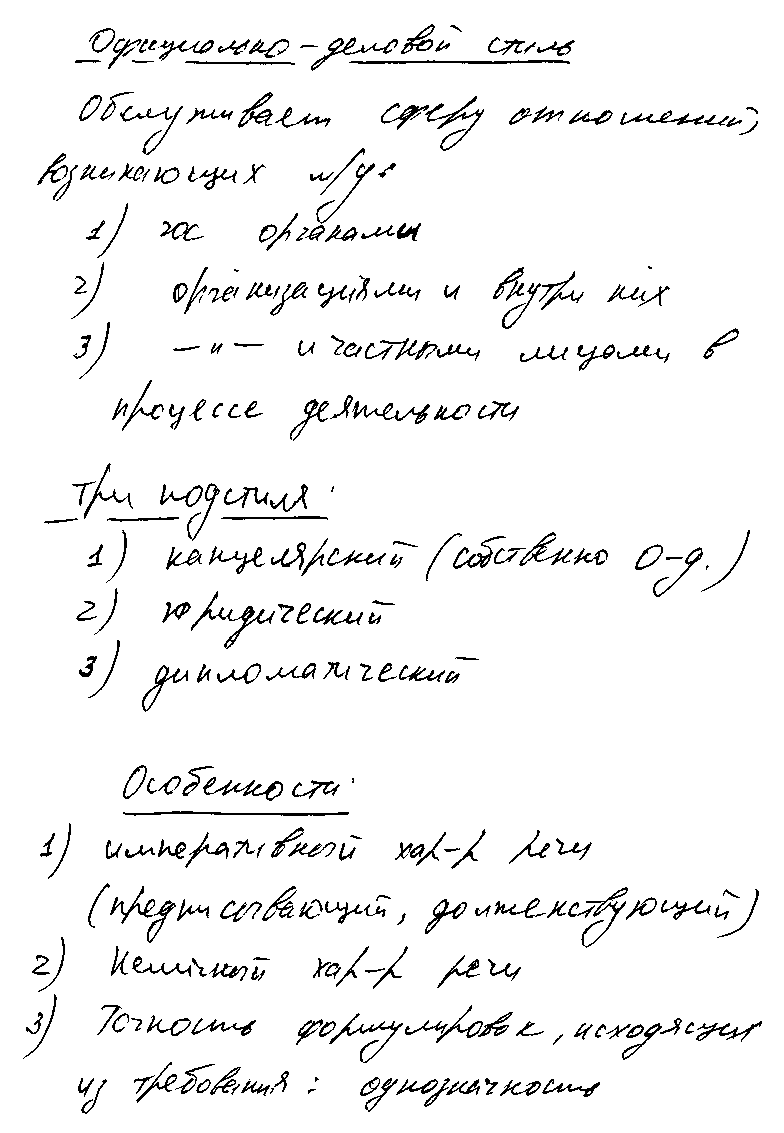 Официально-деловой стиль
Обслуживает сферу отношений,
возникающих м/у:
1) гос органами
2) организациями и внутри них
3) —"— и частными лицами в
процессе деятельности
Три подстиля:
1) канцелярский (собственно О-д.)
2) юридический
3) дипломатический
Особенности:
1) императивный хар-р речи
(предписывающий, долженствующий)
2) Неличный хар-р речи
3) Точность формулировок, исходящих
из требования: однозначность